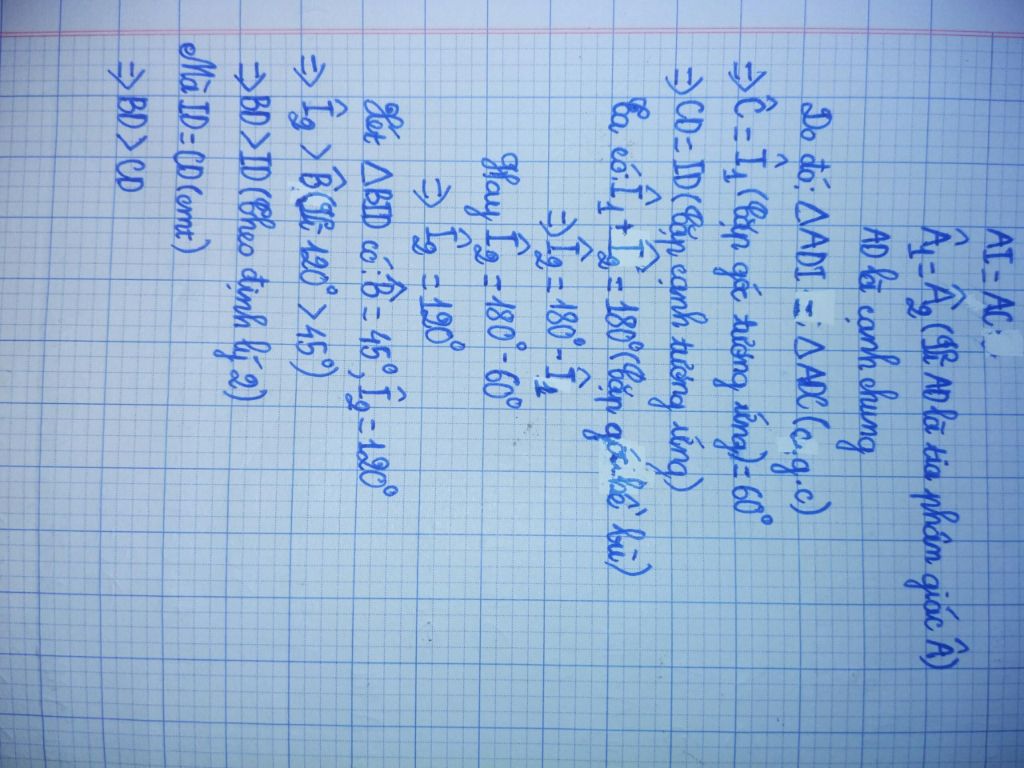 AI = AC
Â₁ = Â₂ (Vì AD là tia phân giác Â)
AD là cạnh chung
Do đó: △ADI = △ADC (c.g.c)
=> Ĉ = Î₁ (Cặp góc tương ứng) = 60°
=> CD = ID (Cặp cạnh tương ứng)
Ta có: Î₁ + Î₂ = 180° (Cặp góc kề bù)
=> Î₂ = 180° - Î₁
Hay Î₂ = 180° - 60°
=> Î₂ = 120°
Xét △BID có: B̂ = 45°, Î₂ = 120°
=> Î₂ > B̂ (Vì 120° > 45°)
=> BD > ID (Theo định lý 2)
Mà ID = CD (cmt)
=> BD > CD